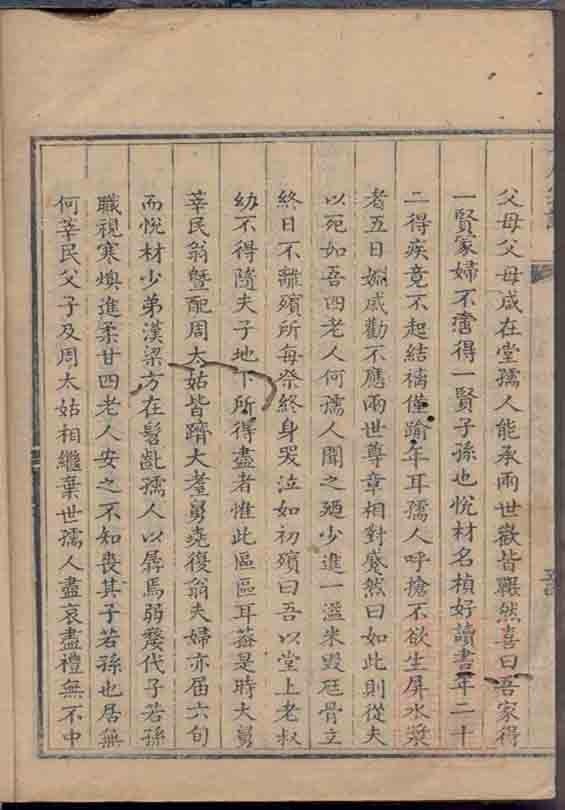 父母父母咸在堂孺人能承兩世歡皆囅然喜曰吾家得
一賢家婦不啻得一賢子孫也悅材名楨好讀書年二十
二得疾竟不起結褵僅踰年耳孺人呼搶不欲生屏水漿
者五日婣戚勸不應兩世尊章相對蹙然曰如此則從夫
以死如吾四老人何孺人聞之廼少進一溢米毀瘠骨立
終日不離殯所每祭終身哭泣如初殯曰吾以堂上老叔
幼不得隨夫子地下所得盡者惟此區區耳葢是時大舅
莘民翁曁配周大姑皆躋大耋舅堯復翁夫婦亦屆六旬
而悅材少弟漢梁方在髫齔孺人以孱焉弱嫠代子若孫
職視寒燠進柔甘四老人安之不知喪其子若孫也居無
何莘民父子及周太姑相繼棄世孺人盡哀盡禮無不中